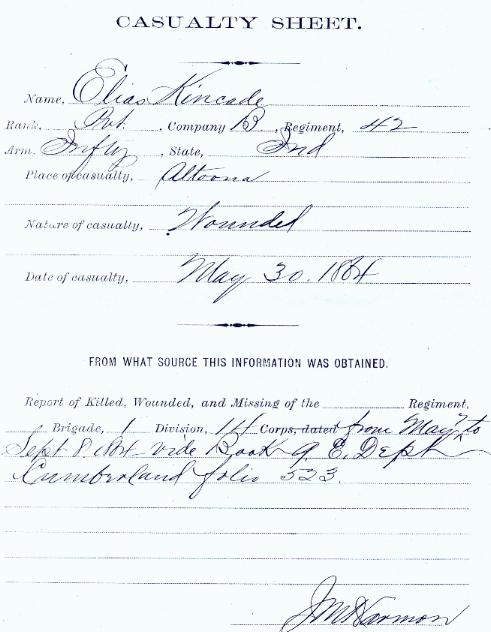 CASUALTY SHEET.
Name, Elias Kincade
Rank, Pvt. , Company B , Regiment, 42
Arm. Infty , State, Ind
Place of casualty, Altoona
Nature of casualty, Wounded
Date of casualty, May 30. 1864
FROM WHAT SOURCE THIS INFORMATION WAS OBTAINED.
Report of Killed, Wounded, and Missing of the Regiment,
Brigade, 1 Division, 14 Corps, dated from May 7 to
Sept 8. 1864 vide Book 9 E. Dept
Cumberland folio 523.
J M Harmon